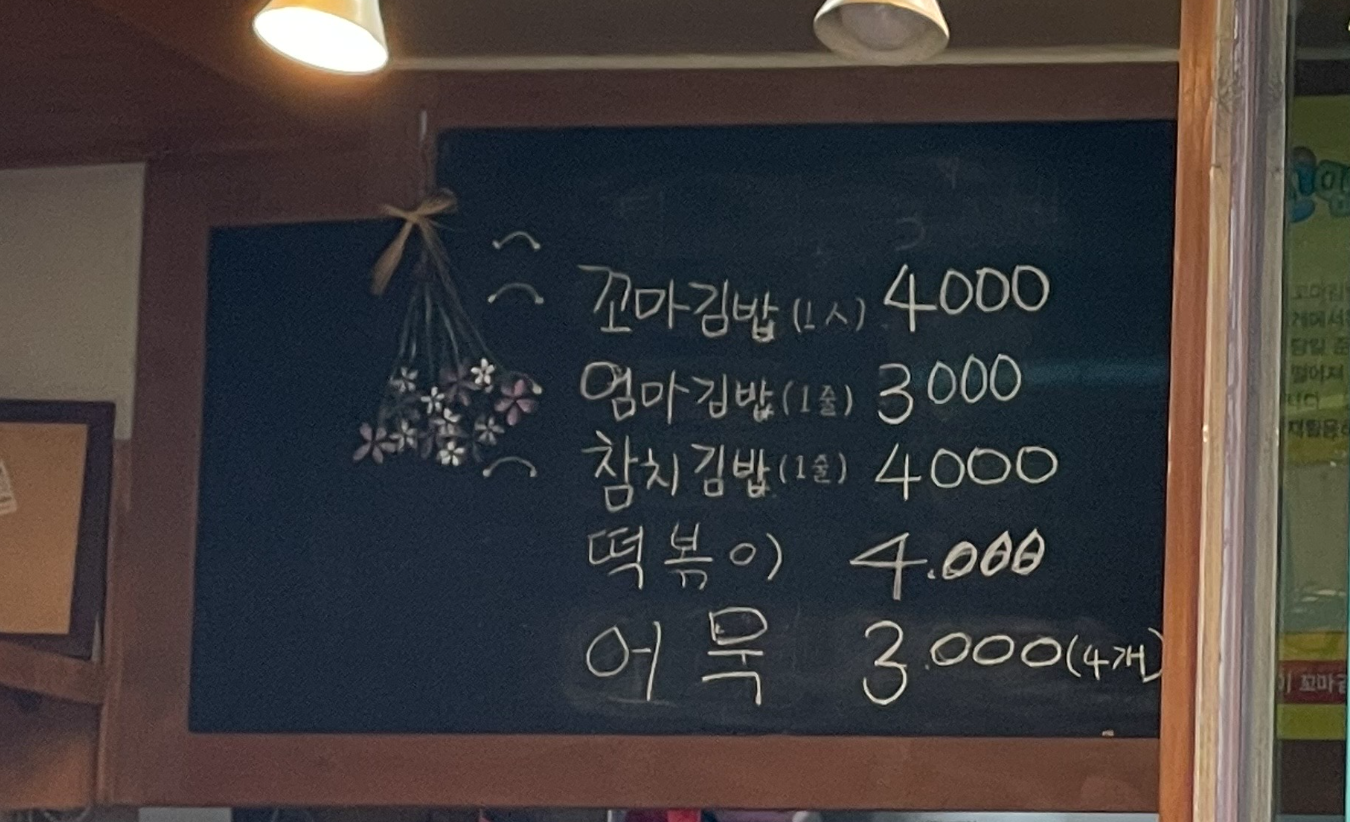 꼬마김밥(1人) 4000
엄마김밥(1줄) 3000
참치김밥(1줄) 4000
떡볶이 4.000
어묵 3.000(4개)
당일
떨어져
니다
재활용
꼬마김